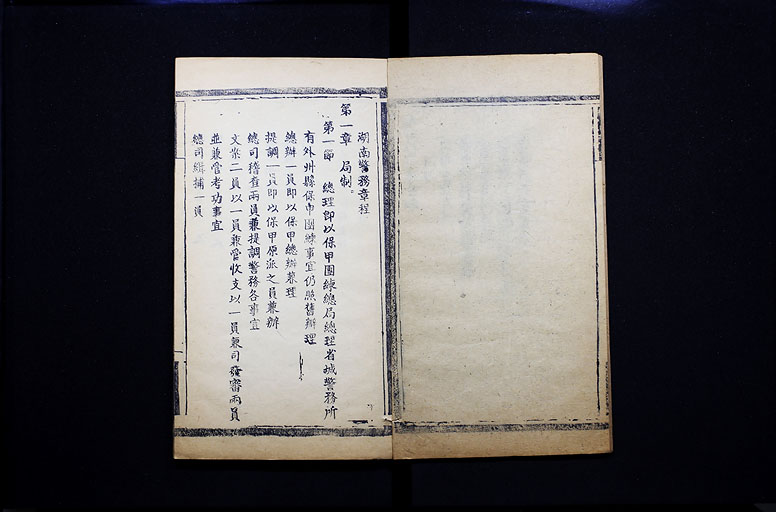 湖南警務章程
第一章 局制。
第一節 總理即以保甲團練總局總理省城警務所
有外州縣保甲團練事宜仍照舊辦理
總辦一員即以保甲總辦兼理
提調一員即以保甲原派之員兼辦
總司稽查兩員兼提調警務各事宜
文案二員以一員兼管收支以一員兼司發審兩員
並兼管考功事宜
總司緝捕一員